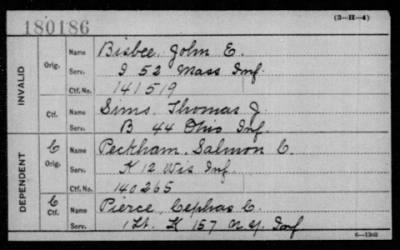 180186
(3—H—4)
INVALID
Orig.
Name Bisbee, John E.
Serv. I 52 Mass Inf.
Ctf. No. 141519
Ctf.
Name Sims, Thomas J.
Serv. B 44 Ohio Inf.
DEPENDENT
C
Orig.
Name Peckham, Salmon C.
Serv. K 12 Wis Inf.
Ctf. No. 140265
C
Ctf.
Name Pierce, Cephas C.
Serv. 1 Lt. K 157 N.Y. Inf